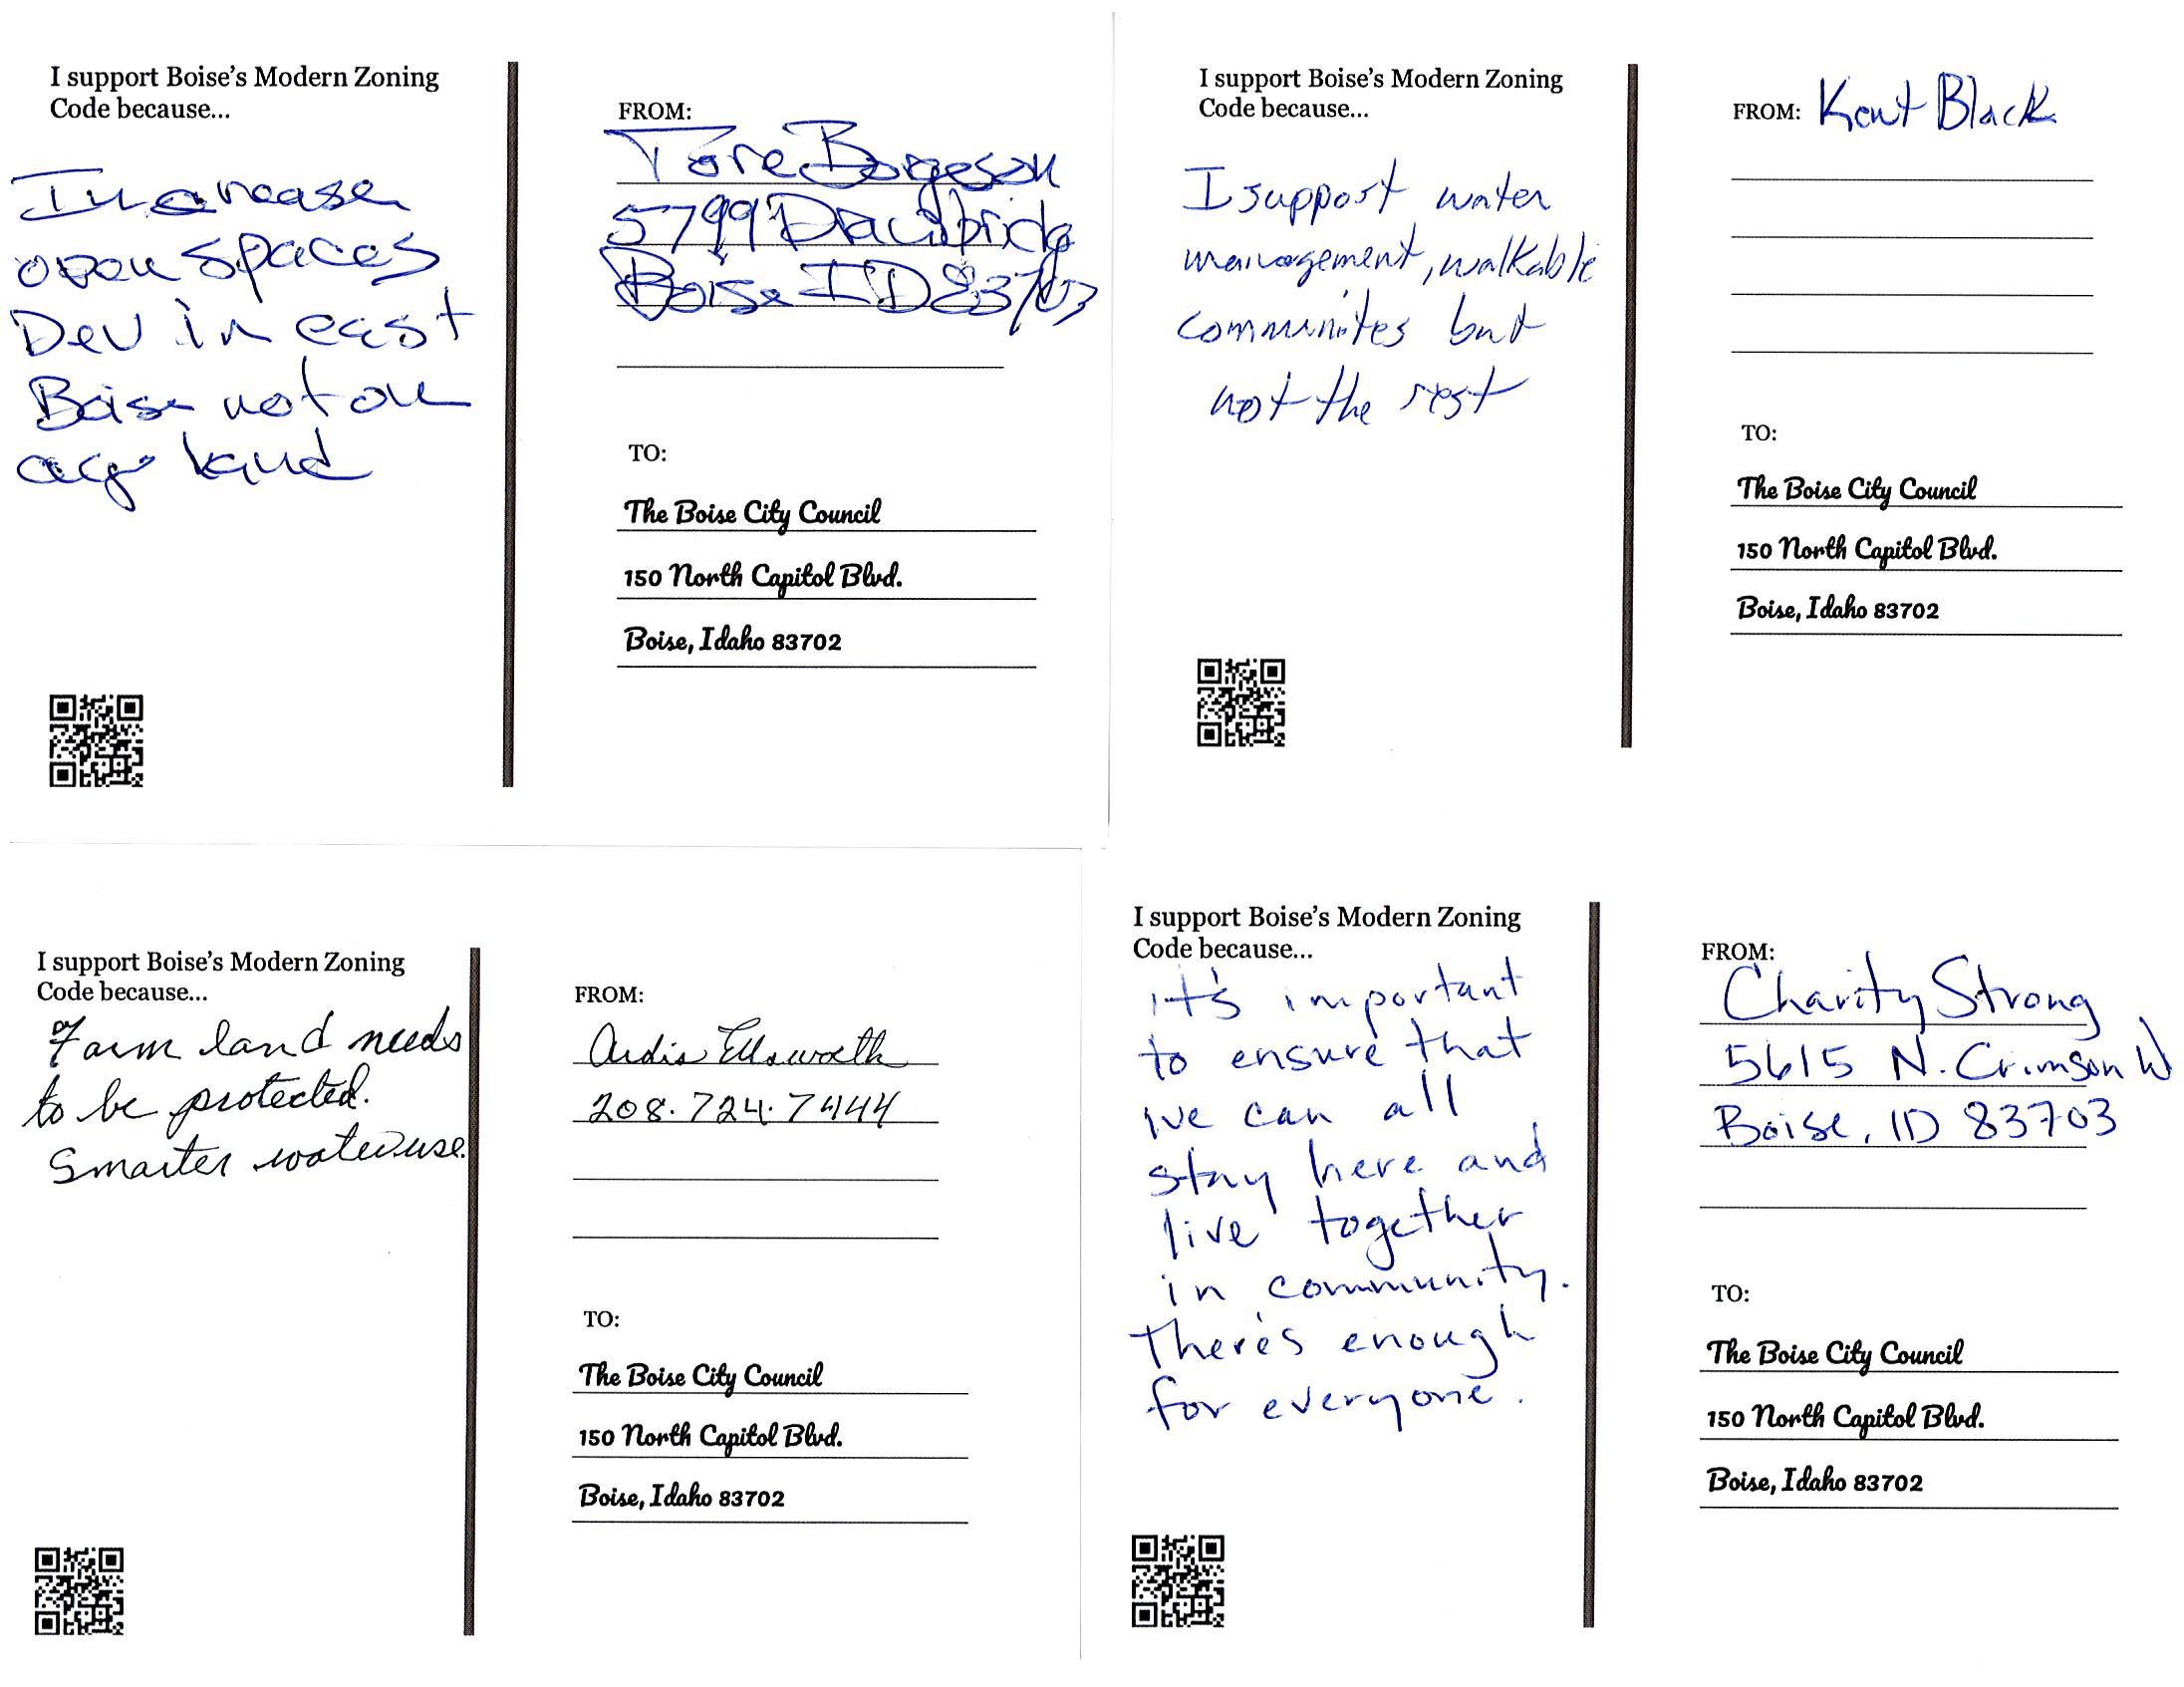 I support Boise's Modern Zoning
Code because...
Increase
open spaces
Dev in east
Boise not on
ag land
FROM:
Tore Borgeson
5799
Boise ID 83703
TO:
The Boise City Council
150 North Capitol Blvd.
Boise, Idaho 83702
I support Boise's Modern Zoning
Code because...
I support water
management, walkable
communites but
not the rest
FROM: Kent Black
TO:
The Boise City Council
150 North Capitol Blvd.
Boise, Idaho 83702
I support Boise's Modern Zoning
Code because...
Farm land needs
to be protected.
Smarter water use.
FROM:
Ardis Ellsworth
208.724.7444
TO:
The Boise City Council
150 North Capitol Blvd.
Boise, Idaho 83702
I support Boise's Modern Zoning
Code because...
it's important
to ensure that
we can all
stay here and
live together
in community.
there's enough
for everyone.
FROM:
Charity Strong
5615 N. Crimson W
Boise, ID 83703
TO:
The Boise City Council
150 North Capitol Blvd.
Boise, Idaho 83702